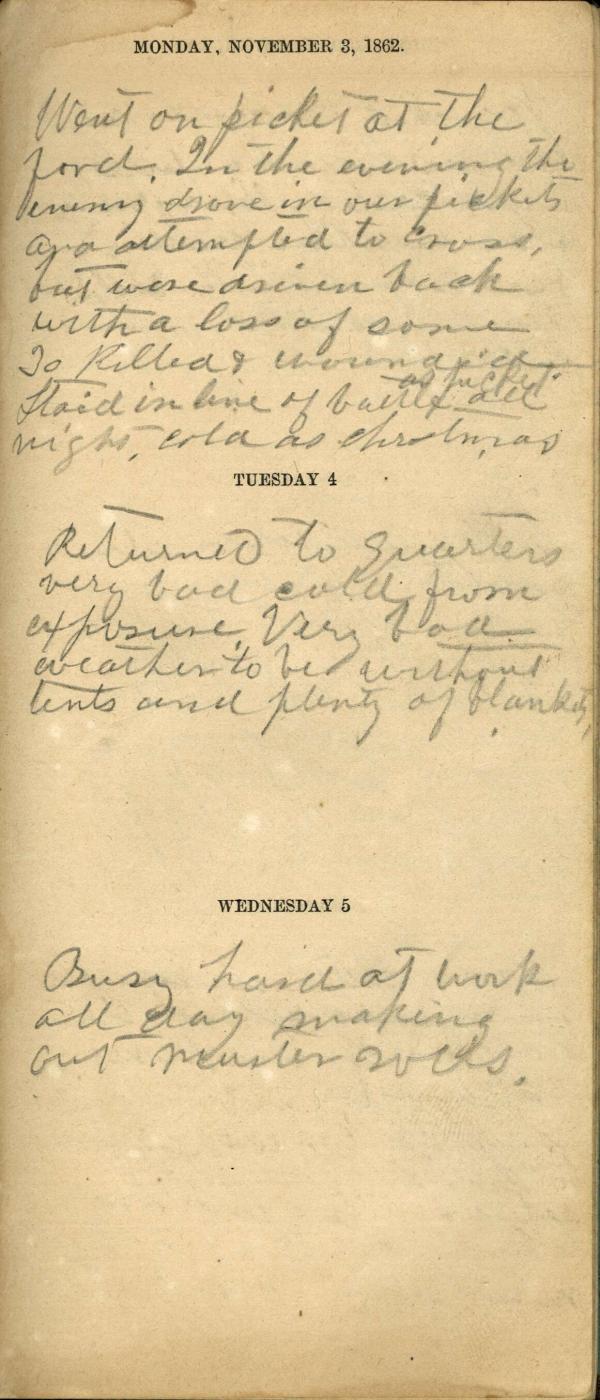 MONDAY, NOVEMBER 3, 1862.
Went on picket at the
ford. In the evening the
enemy drove in our pickets
and attempted to cross,
but were driven back
with a loss of some
Killed & wounded
as picket
Staid in line of battle all
night, cold as christmas
TUESDAY 4
Returned to quarters
very bad cold from
exposure. Very bad
weather to be without
tents and plenty of blankets,
WEDNESDAY 5
Busy hard at work
all day making
out muster rolls.